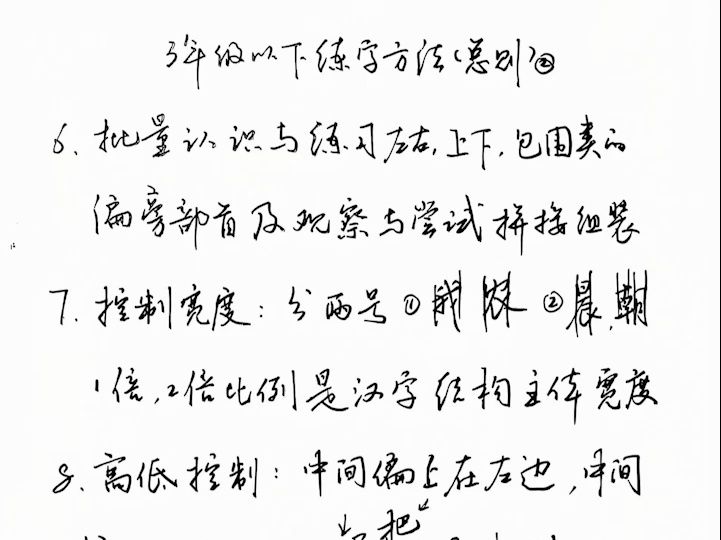 3年级以下练字方法(总则)②
6、批量认识与练习左右,上下,包围类的
偏旁部首及观察与尝试拼接组装
7、控制宽度:分两号① ②晨,朝
1倍,2倍比例是汉字结构主体宽度
8、高低控制:中间偏上在左边,中间
把